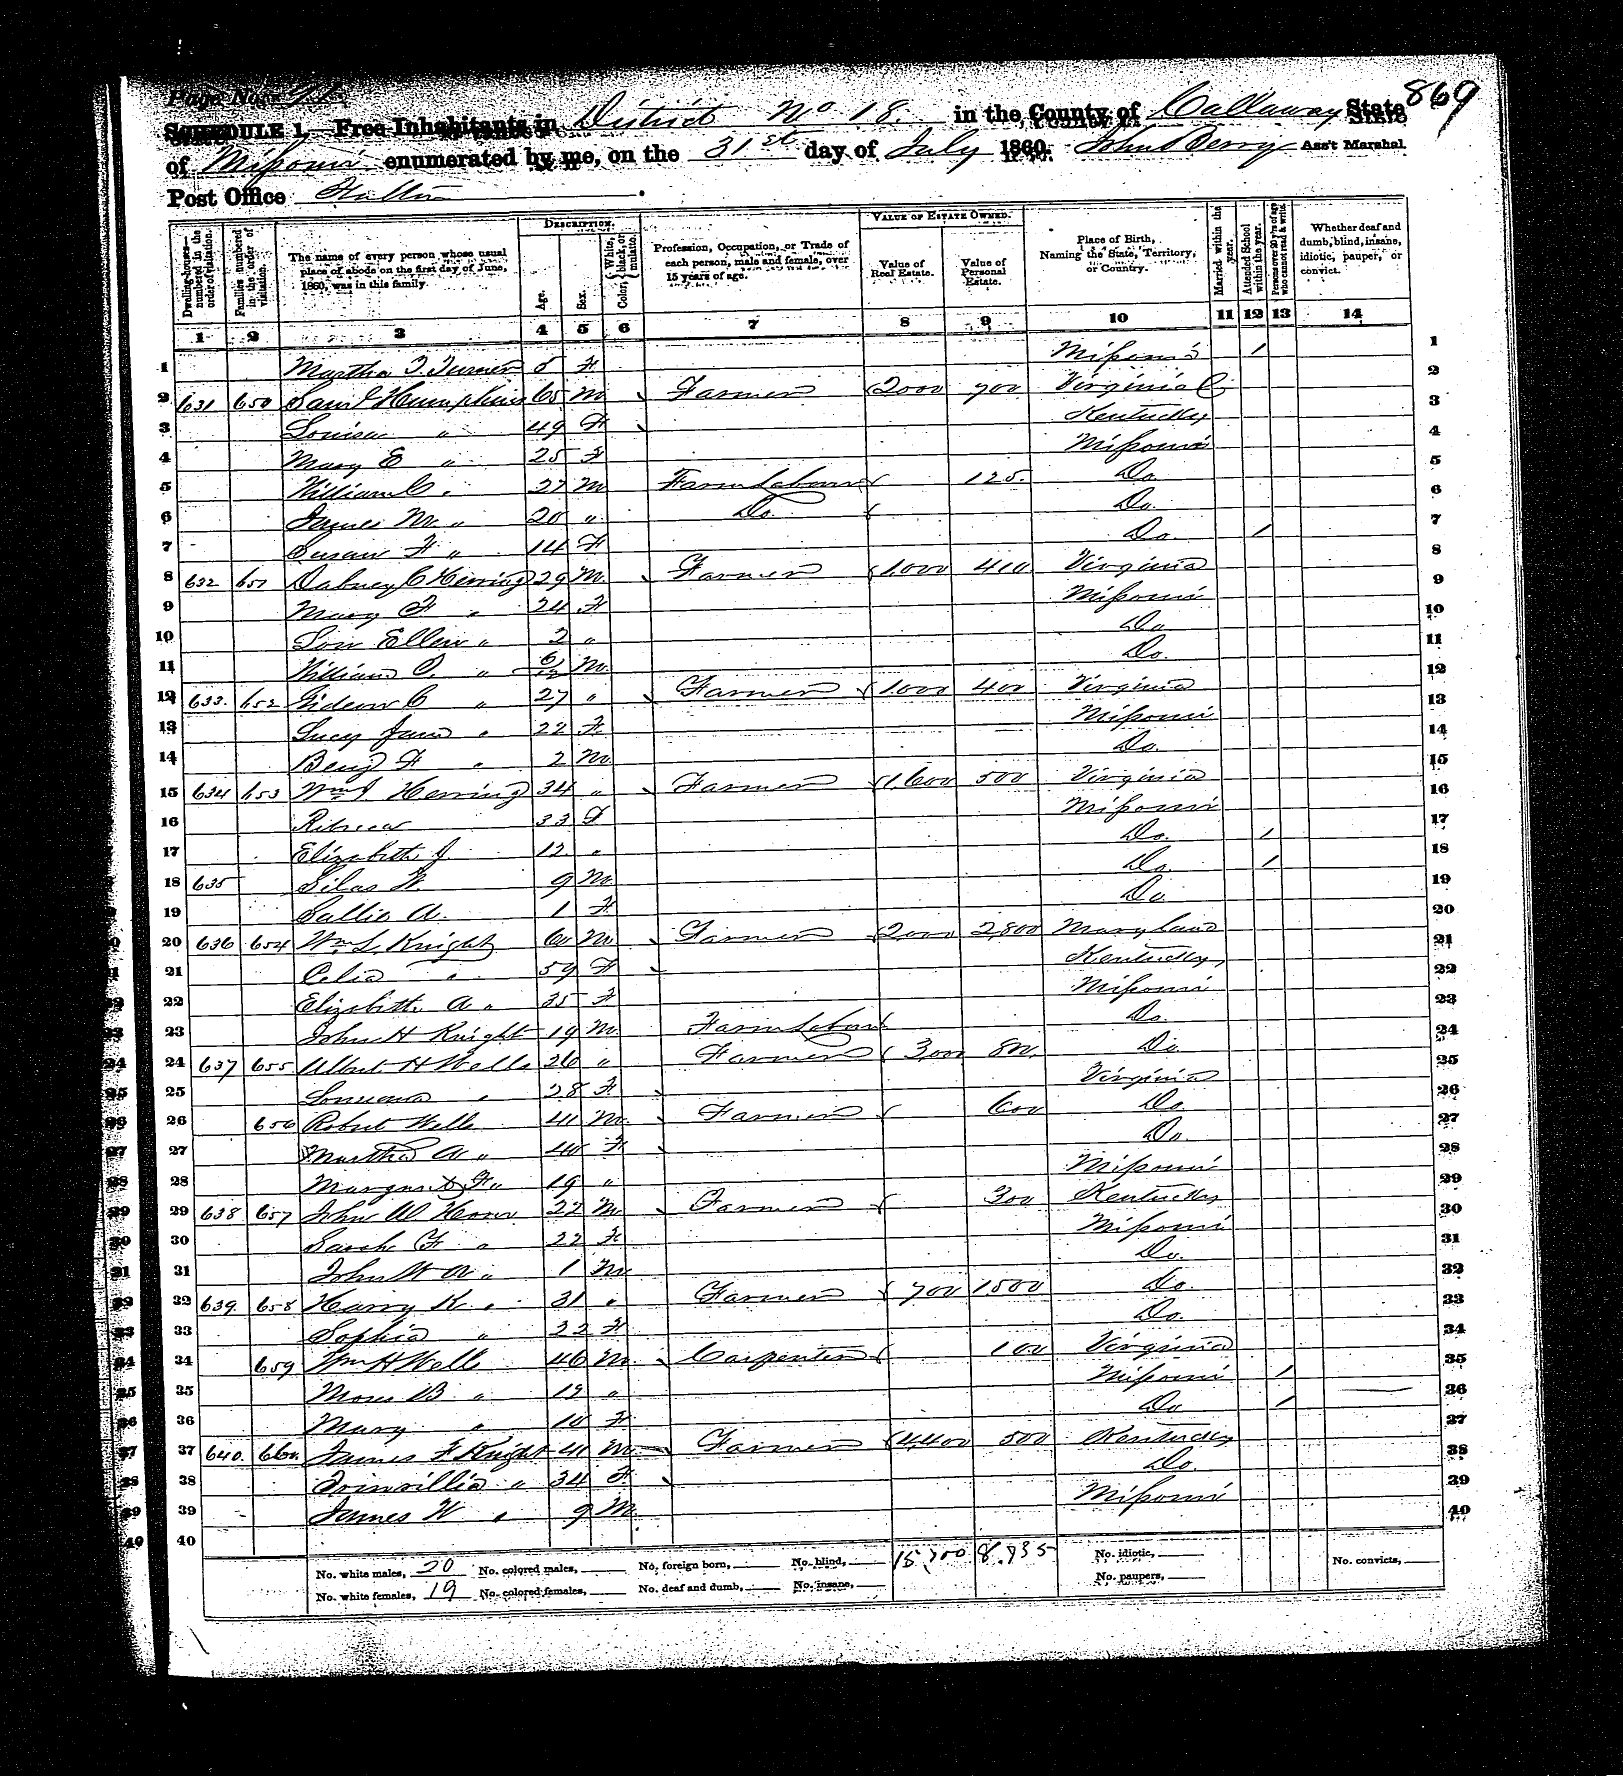 Page No. 869
SCHEDULE 1. Free Inhabitants in District No 18. in the County of Callaway State
of Missouri enumerated by me, on the 31st day of July 1860. John Berry Ass't Marshal.
Post Office Fulton
Dwelling-houses— numbered in the order of visitation.
Families numbered in the order of visitation.
The name of every person whose usual place of abode on the first day of June, 1860, was in this family.
DESCRIPTION.
Age.
Sex.
Color, { White, black, or mulatto.
Profession, Occupation, or Trade of each person, male and female, over 15 years of age.
VALUE OF ESTATE OWNED.
Value of Real Estate.
Value of Personal Estate.
Place of Birth, Naming the State, Territory, or Country.
Married within the year.
Attended School within the year.
Persons over 20 y'rs of age who cannot read & write.
Whether deaf and dumb, blind, insane, idiotic, pauper, or convict.
1 2 3 4 5 6 7 8 9 10 11 12 13 14
1 Martha T. Turner 5 F Missouri / 1
2 631 650 Saml Humphries 65 M Farmer 2000 700 Virginia 2
3 Louisa " 49 F Kentucky 3
4 Mary E " 25 F Missouri 4
5 William C. " 27 M Farm Laborer 125. Do 5
6 James M. " 20 " Do. Do. 6
7 Susan F " 14 F Do / 7
8 632 651 Dabney C Herring 29 M Farmer 1,000 410 Virginia 8
9 Mary F " 24 F Missouri 9
10 Lou Ellen " 2 " Do 10
11 William O. " 6/12 M. Do. 11
12 633. 652 Gideon C " 27 " Farmer 1000 400 Virginia 12
13 Lucy Jane " 22 F Missouri 13
14 Benj F " 2 M Do 14
15 634 653 Wm J. Herring 34 " Farmer 1,600 500 Virginia 15
16 Rebecca 33 F Missouri 16
17 Elizabeth J. 12 " Do. / 17
18 635 Silas W. 9 M Do. / 18
19 Sallie A. 1 F Do 19
20 636 654 Wm S. Knight 60 M Farmer 2000 2,800 Maryland 20
21 Celia " 59 F Kentucky 21
22 Elizabeth A " 35 F Missouri 22
23 John H Knight 19 M. Farm Labor Do. 23
24 637 655 Albert H Wells 26 " Farmer 3,000 800. Do. 24
25 Louisana " 28 F Virginia 25
26 656 Robert Wells 41 M. Farmer 600 Do 26
27 Martha A " 40 F Do. 27
28 Margaret F " 19 " Missouri 28
29 638 657 John W 27 M Farmer 300 Kentucky 29
30 Sarah F " 22 F. Missouri 30
31 John W A " 1 M Do. 31
32 639. 658 Harry K. " 31 " Farmer 700 1500 Do. 32
33 Sophia " 22 F Do. 33
34 659 Wm H Wells 46 M. Carpenter 100 Virginia 34
35 Moses B " 12 " Missouri / 35
36 Mary " 10 F Do / 36
37 640. 660. James F Knight 41 M Farmer 4,400 500 Kentucky 37
38 " 34 F Do. 38
39 James W " 9 M. Missouri 39
40 40
No. white males, 20 No. colored males, No. foreign born, No. blind, 15,700 8,735 No. idiotic, No. convicts,
No. white females, 19 No. colored females, No. deaf and dumb, No. insane, No. paupers,